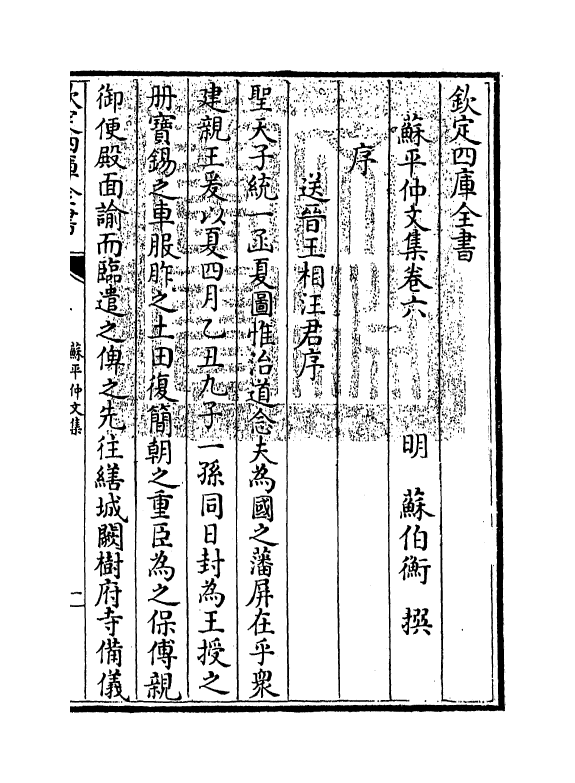 欽定四庫全書
蘇平仲文集卷六　明　蘇伯衡　撰
序
送晉王相汪君序
聖天子統一函夏圖惟治道念夫為國之藩屏在乎衆
建親王爰以夏四月乙丑九子一孫同日封為王授之
册寶錫之車服胙之土田復簡朝之重臣為之保傅親
御便殿面諭而臨遣之俾之先往繕城闕樹府寺備儀
欽定四庫全書
蘇平仲文集